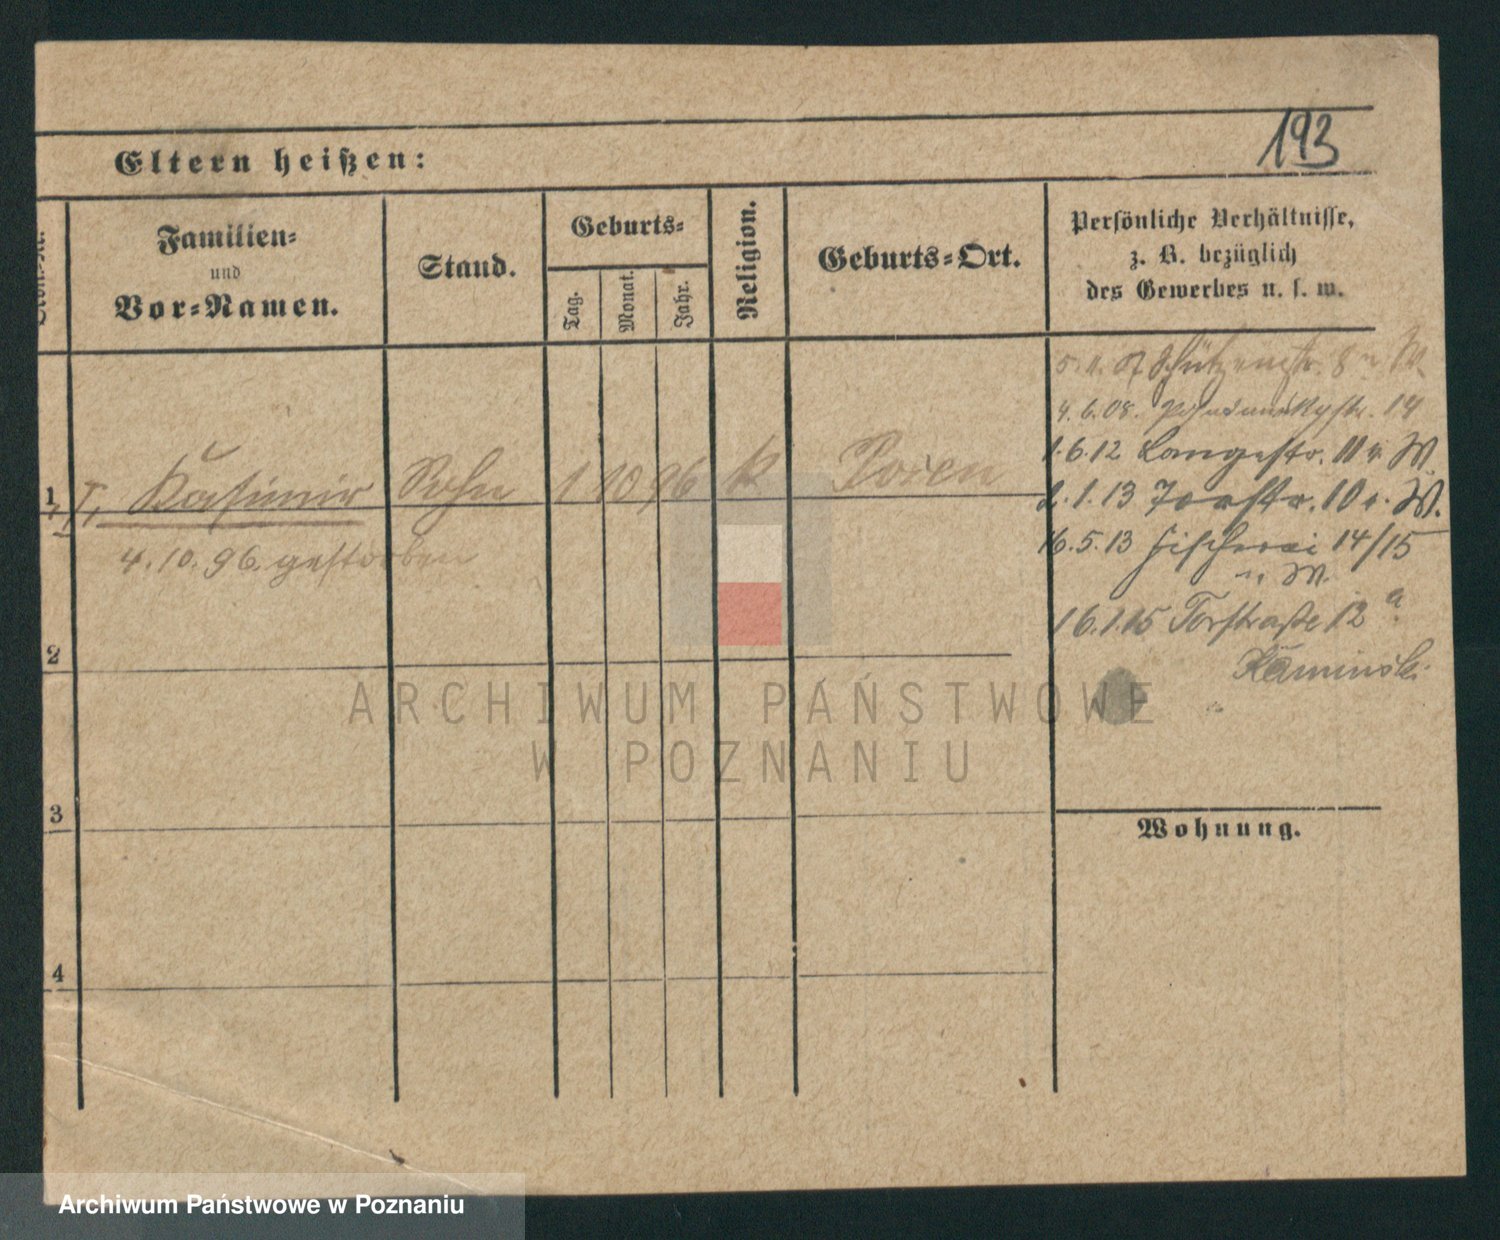 193
Eltern heißen:
Familien-
und
Vor-Namen.
Stand.
Geburts-
Tag.
Monat.
Jahr.
Religion.
Geburts-Ort.
Persönliche Verhältnisse,
z. B. bezüglich
des Gewerbes u. s. w.
5.11.07 Schützenstr. 8
4.6.08. 14
1.6.12 Langestr. 11 v. W.
1 I, Kasimir Sohn 1 10 96 k Posen
2.1.13 Torstr. 10 v. W.
4.10.96. gestorben
16.5.13 Fischerei 14/15
v. W.
16.1.15 Torstraße 12 a
Kaminski
2
3
4
Wohnung.
ARCHIWUM PAŃSTWOWE
W POZNANIU
Archiwum Państwowe w Poznaniu